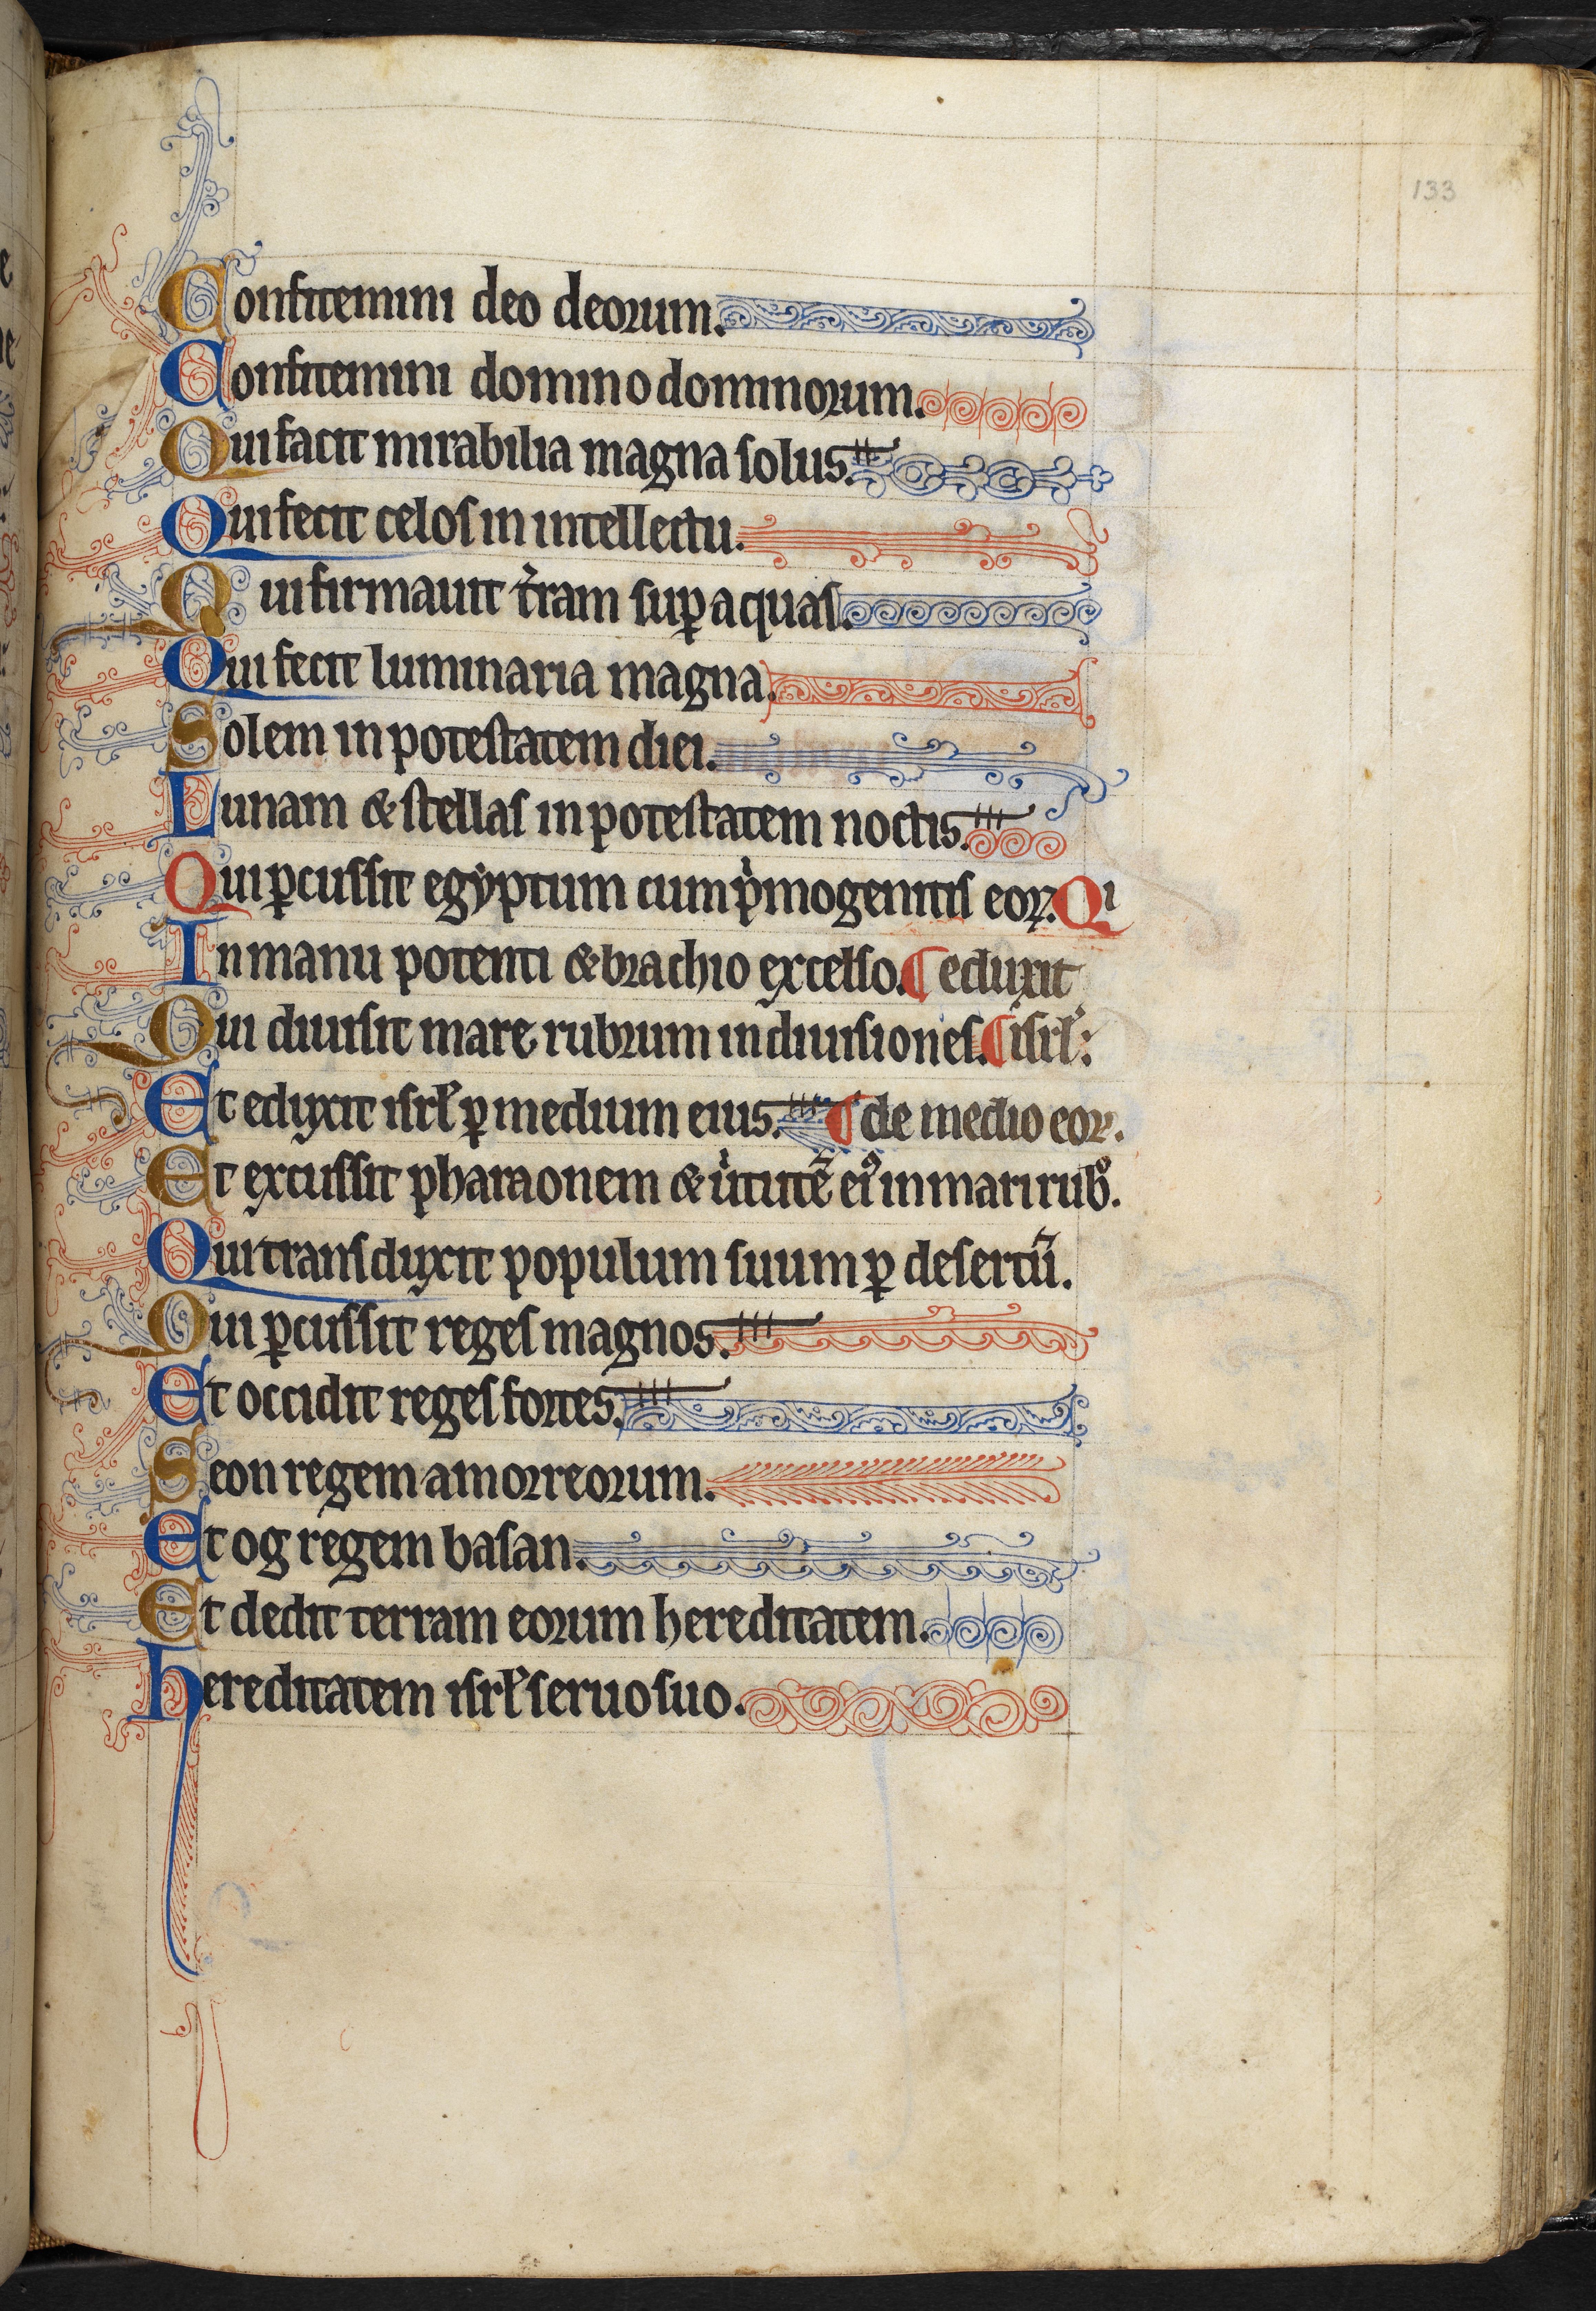 133
Confitemini deo deorum.
Confitemini domino dominorum.
Qui facit mirabilia magna solus.
Qui fecit celos in intellectu.
Qui firmauit t̾ram sup̲ aquas.
Qui fecit luminaria magna.
Solem in potestatem diei.
Lunam & stellas in potestatem noctis.
Qui ꝑcussit egyptum cum pͥmogenitis eoꝝ. Qͥ
In manu potenti & brachio excelso. ¶ eduxit
Qui diuisit mare rubrum in diuisiones. ¶ isrl̾:
Et eduxit isrl̾ ꝑ medium eius. ¶ de medio eoꝝ.
Et excussit pharaonem & uͥtutē eiꝰ in mari rubͦ.
Qui transduxit populum suum ꝑ desertū.
Qui ꝑcussit reges magnos.
Et occidit reges fortes.
Seon regem amorreorum.
Et og regem basan.
Et dedit terram eorum hereditatem.
hereditatem isrl̾ seruo suo.